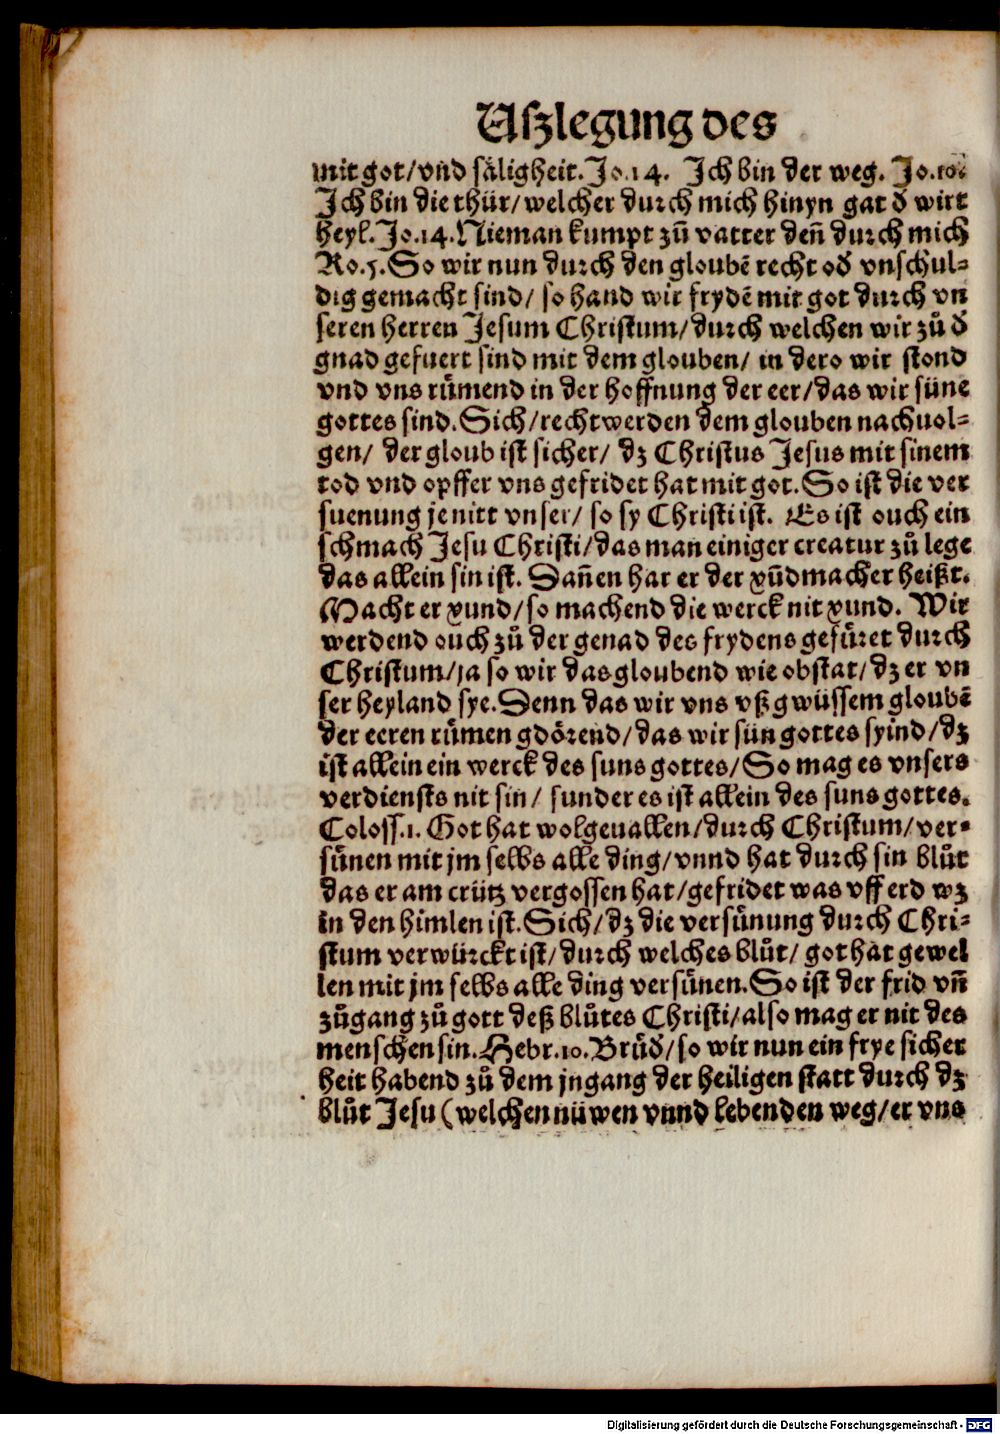 Uſzlegung des
mit got/vnd säligheit. Jo.14. Jch bin der weg. Jo.10.
Jch bin die thür/welcher durch mich hinyn gat đ wirt
heyl. Jo.14. Nieman kumpt zů vatter deñ durch mich
Ro.5. So wir nun durch den gloubē recht ođ vnſchul⸗
dig gemacht sind/ ſo hand wir frydē mit got durch vn
ſeren herren Jeſum Chriſtum/durch welchen wir zů đ
gnad gefuert ſind mit dem glouben/ in dero wir ſtond
vnd vns rümend in der hoffnung der eer/das wir süne
gottes ſind. Sich/recht werden dem glouben nachuol⸗
gen/ der gloub iſt ſicher/ dz Chriſtus Jeſus mit ſinem
tod vnd opffer vns gefridet hat mit got. So iſt die ver
ſuenung je nitt vnſer/ ſo ſy Chriſti iſt. Es iſt ouch ein
ſchmach Jeſu Chriſti/das man einiger creatur zů lege
das allein ſin iſt. Dañen har er der xůdmacher heißt.
Macht er xund/ſo machend die werck nit xund. Wir
werdend ouch zů der genad des frydens gefüret durch
Chriſtum/ja ſo wir das gloubend wie obſtat/dz er vn
ſer heyland ſye. Denn das wir vns vß gwüſſem gloubē
der eeren rümen gdörend/das wir ſün gottes ſyind/dz
iſt allein ein werck des ſuns gottes/So mag es vnſers
verdienſts nit ſin/ ſunder es iſt allein des ſuns gottes.
Coloſſ.1. Got hat wolgeuallen/durch Chriſtum/ver⸗
ſünen mit jm ſelbs alle ding/vnnd hat durch ſin blůt
das er am crütz vergoſſen hat/gefridet was vff erd wz
in den himlen iſt. Sich/dz die verſünung durch Chri⸗
ſtum verwürckt iſt/durch welches blůt/ got hat gewel
len mit jm ſelbs alle ding verſünen. So iſt der frid vñ
zůgang zů gott deß blůtes Chriſti/alſo mag er nit des
menſchen ſin. Hebr.10. Brůđ/ſo wir nun ein frye ſicher
heit habend zů dem jngang der heiligen ſtatt durch dz
blůt Jeſu (welchen nüwen vnnd lebenden weg/er vns
Digitalisierung gefördert durch die Deutsche Forschungsgemeinschaft - DFG